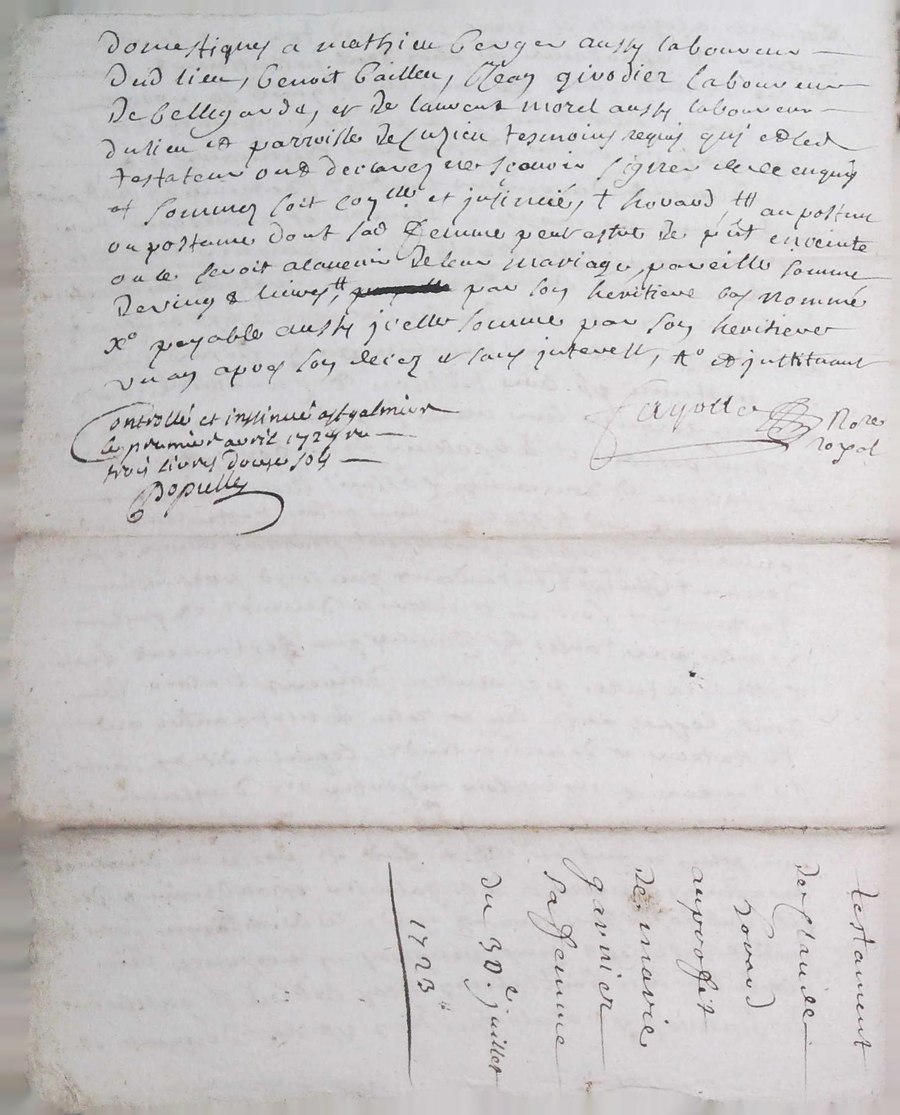 domestiques a mathieu berger aussy laboureur
dud lieu, benoit baillen, Jean givodier laboureur
de bellegarde, et de laurent morel aussy laboureur
du lieu et parroisse de Cuzieu tesmoins requis qui et led
testateur ont declarez ne sçavoir signer de ce enquis
et sommez soit et insinué, † houard ††† au postume
ou postume dont sad femme peut estre de pnt enceinte
ou le seroit a lavenir de leur mariage pareille somme
de vingt livres, †† par son heritiere bas nommé
xo payable aussy icelle somme par son heritiere
un an apres son decez et sans interest, et jnstituant
Controllé et insinué a st galmier
le premier avril 1724 re
trois livres douze sols
Populle
Nore
royal
testament
de Claude
houard
au proffit
de marie
garnier
sa femme
du 30e juillet
1723